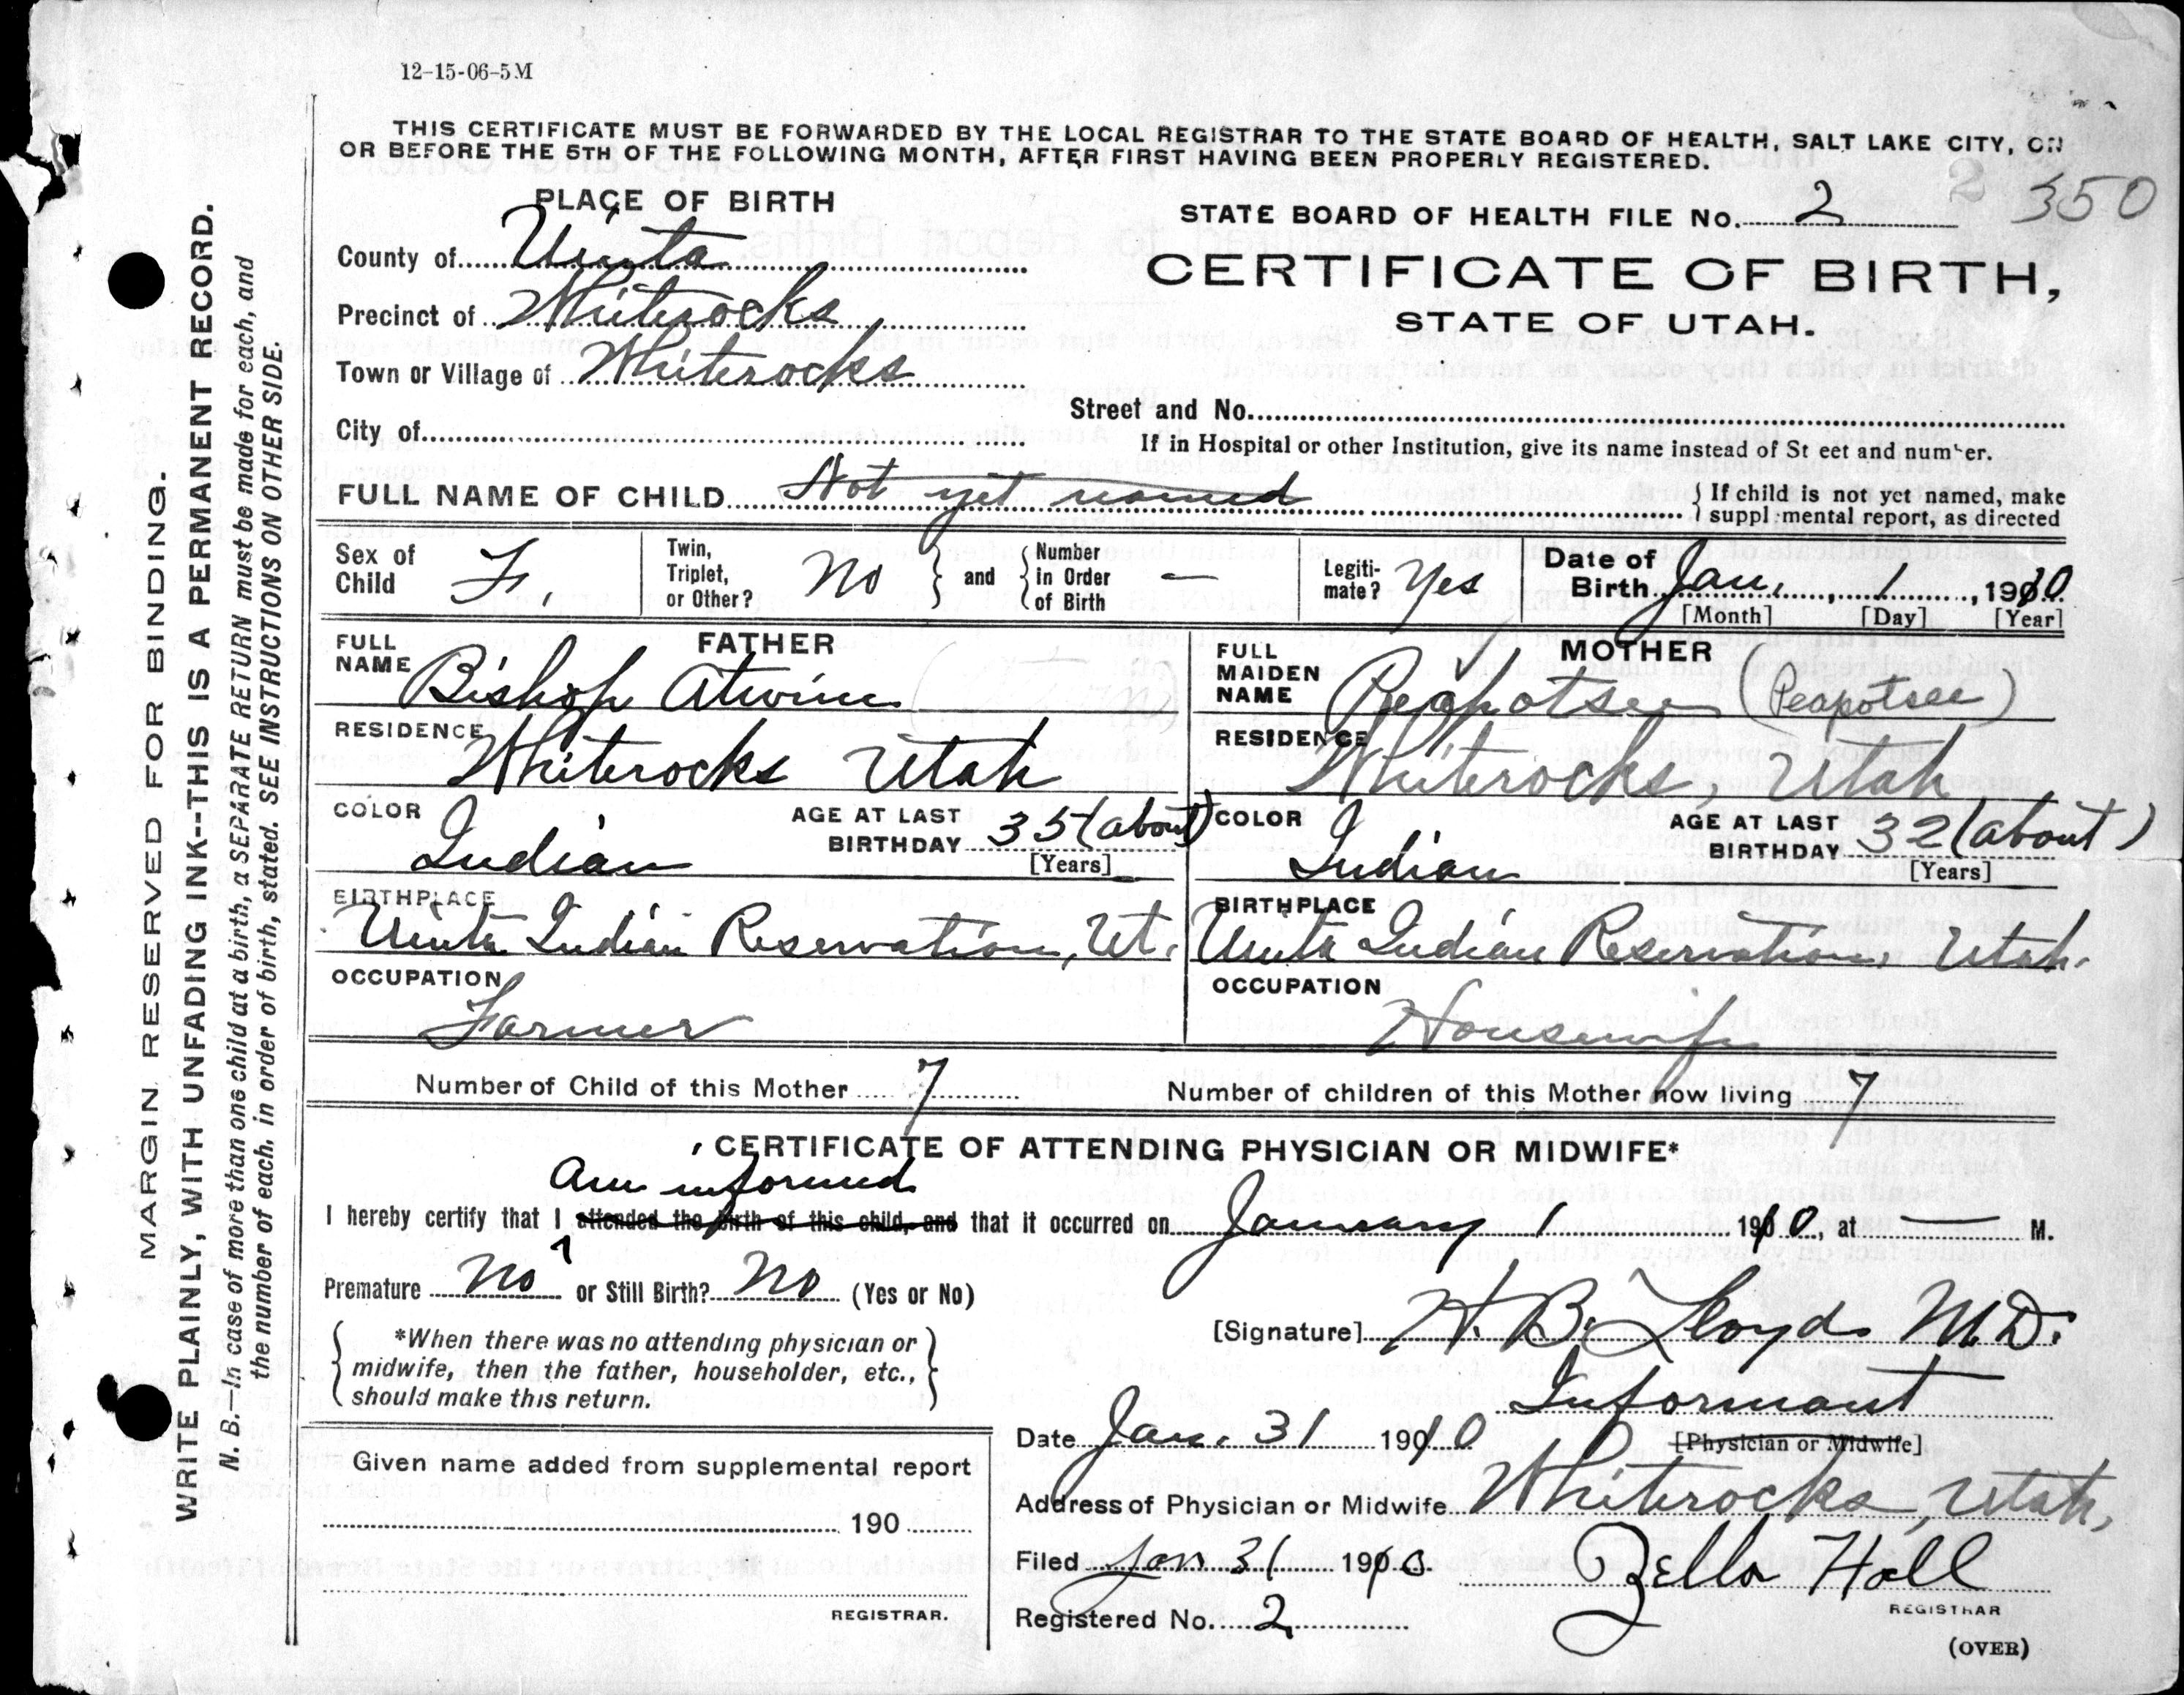 12-15-06-5M
THIS CERTIFICATE MUST BE FORWARDED BY THE LOCAL REGISTRAR TO THE STATE BOARD OF HEALTH, SALT LAKE CITY, ON
OR BEFORE THE 5TH OF THE FOLLOWING MONTH, AFTER FIRST HAVING BEEN PROPERLY REGISTERED.
2 350
PLACE OF BIRTH
STATE BOARD OF HEALTH FILE No. 2
County of Uinta
CERTIFICATE OF BIRTH,
Precinct of Whiterocks
STATE OF UTAH.
Town or Village of Whiterocks
Street and No.
City of
If in Hospital or other Institution, give its name instead of St eet and number.
FULL NAME OF CHILD Not yet named
If child is not yet named, make
suppl mental report, as directed
Sex of Child F.
Twin, Triplet, or Other? No
and Number in Order of Birth —
Legiti-mate? Yes
Date of Birth Jan. 1, 1910
[Month] [Day] [Year]
FATHER
FULL NAME Bishop Atwine
RESIDENCE Whiterocks Utah
COLOR Indian
AGE AT LAST BIRTHDAY 35 (about)
[Years]
BIRTHPLACE Uinta Indian Reservation, Ut.
OCCUPATION Farmer
MOTHER
FULL MAIDEN NAME Peapotsee (Peapotsee)
RESIDENCE Whiterocks, Utah
COLOR Indian
AGE AT LAST BIRTHDAY 32 (about)
[Years]
BIRTHPLACE Uinta Indian Reservation, Utah.
OCCUPATION Housewife
Number of Child of this Mother 7
Number of children of this Mother now living 7
CERTIFICATE OF ATTENDING PHYSICIAN OR MIDWIFE*
Am informed
I hereby certify that I attended the birth of this child, and that it occurred on January 1 1910, at — M.
Premature No or Still Birth? No (Yes or No)
*When there was no attending physician or
midwife, then the father, householder, etc.,
should make this return.
[Signature] H. B. Lloyd M.D.
Informant
[Physician or Midwife]
Date Jan. 31 1910
Address of Physician or Midwife Whiterocks, Utah,
Filed Jan 31 1910
Zella Hall
REGISTRAR
Registered No. 2
(OVER)
Given name added from supplemental report
190
REGISTRAR.
MARGIN RESERVED FOR BINDING.
WRITE PLAINLY, WITH UNFADING INK--THIS IS A PERMANENT RECORD.
N. B.—In case of more than one child at a birth, a SEPARATE RETURN must be made for each, and
the number of each, in order of birth, stated. SEE INSTRUCTIONS ON OTHER SIDE.